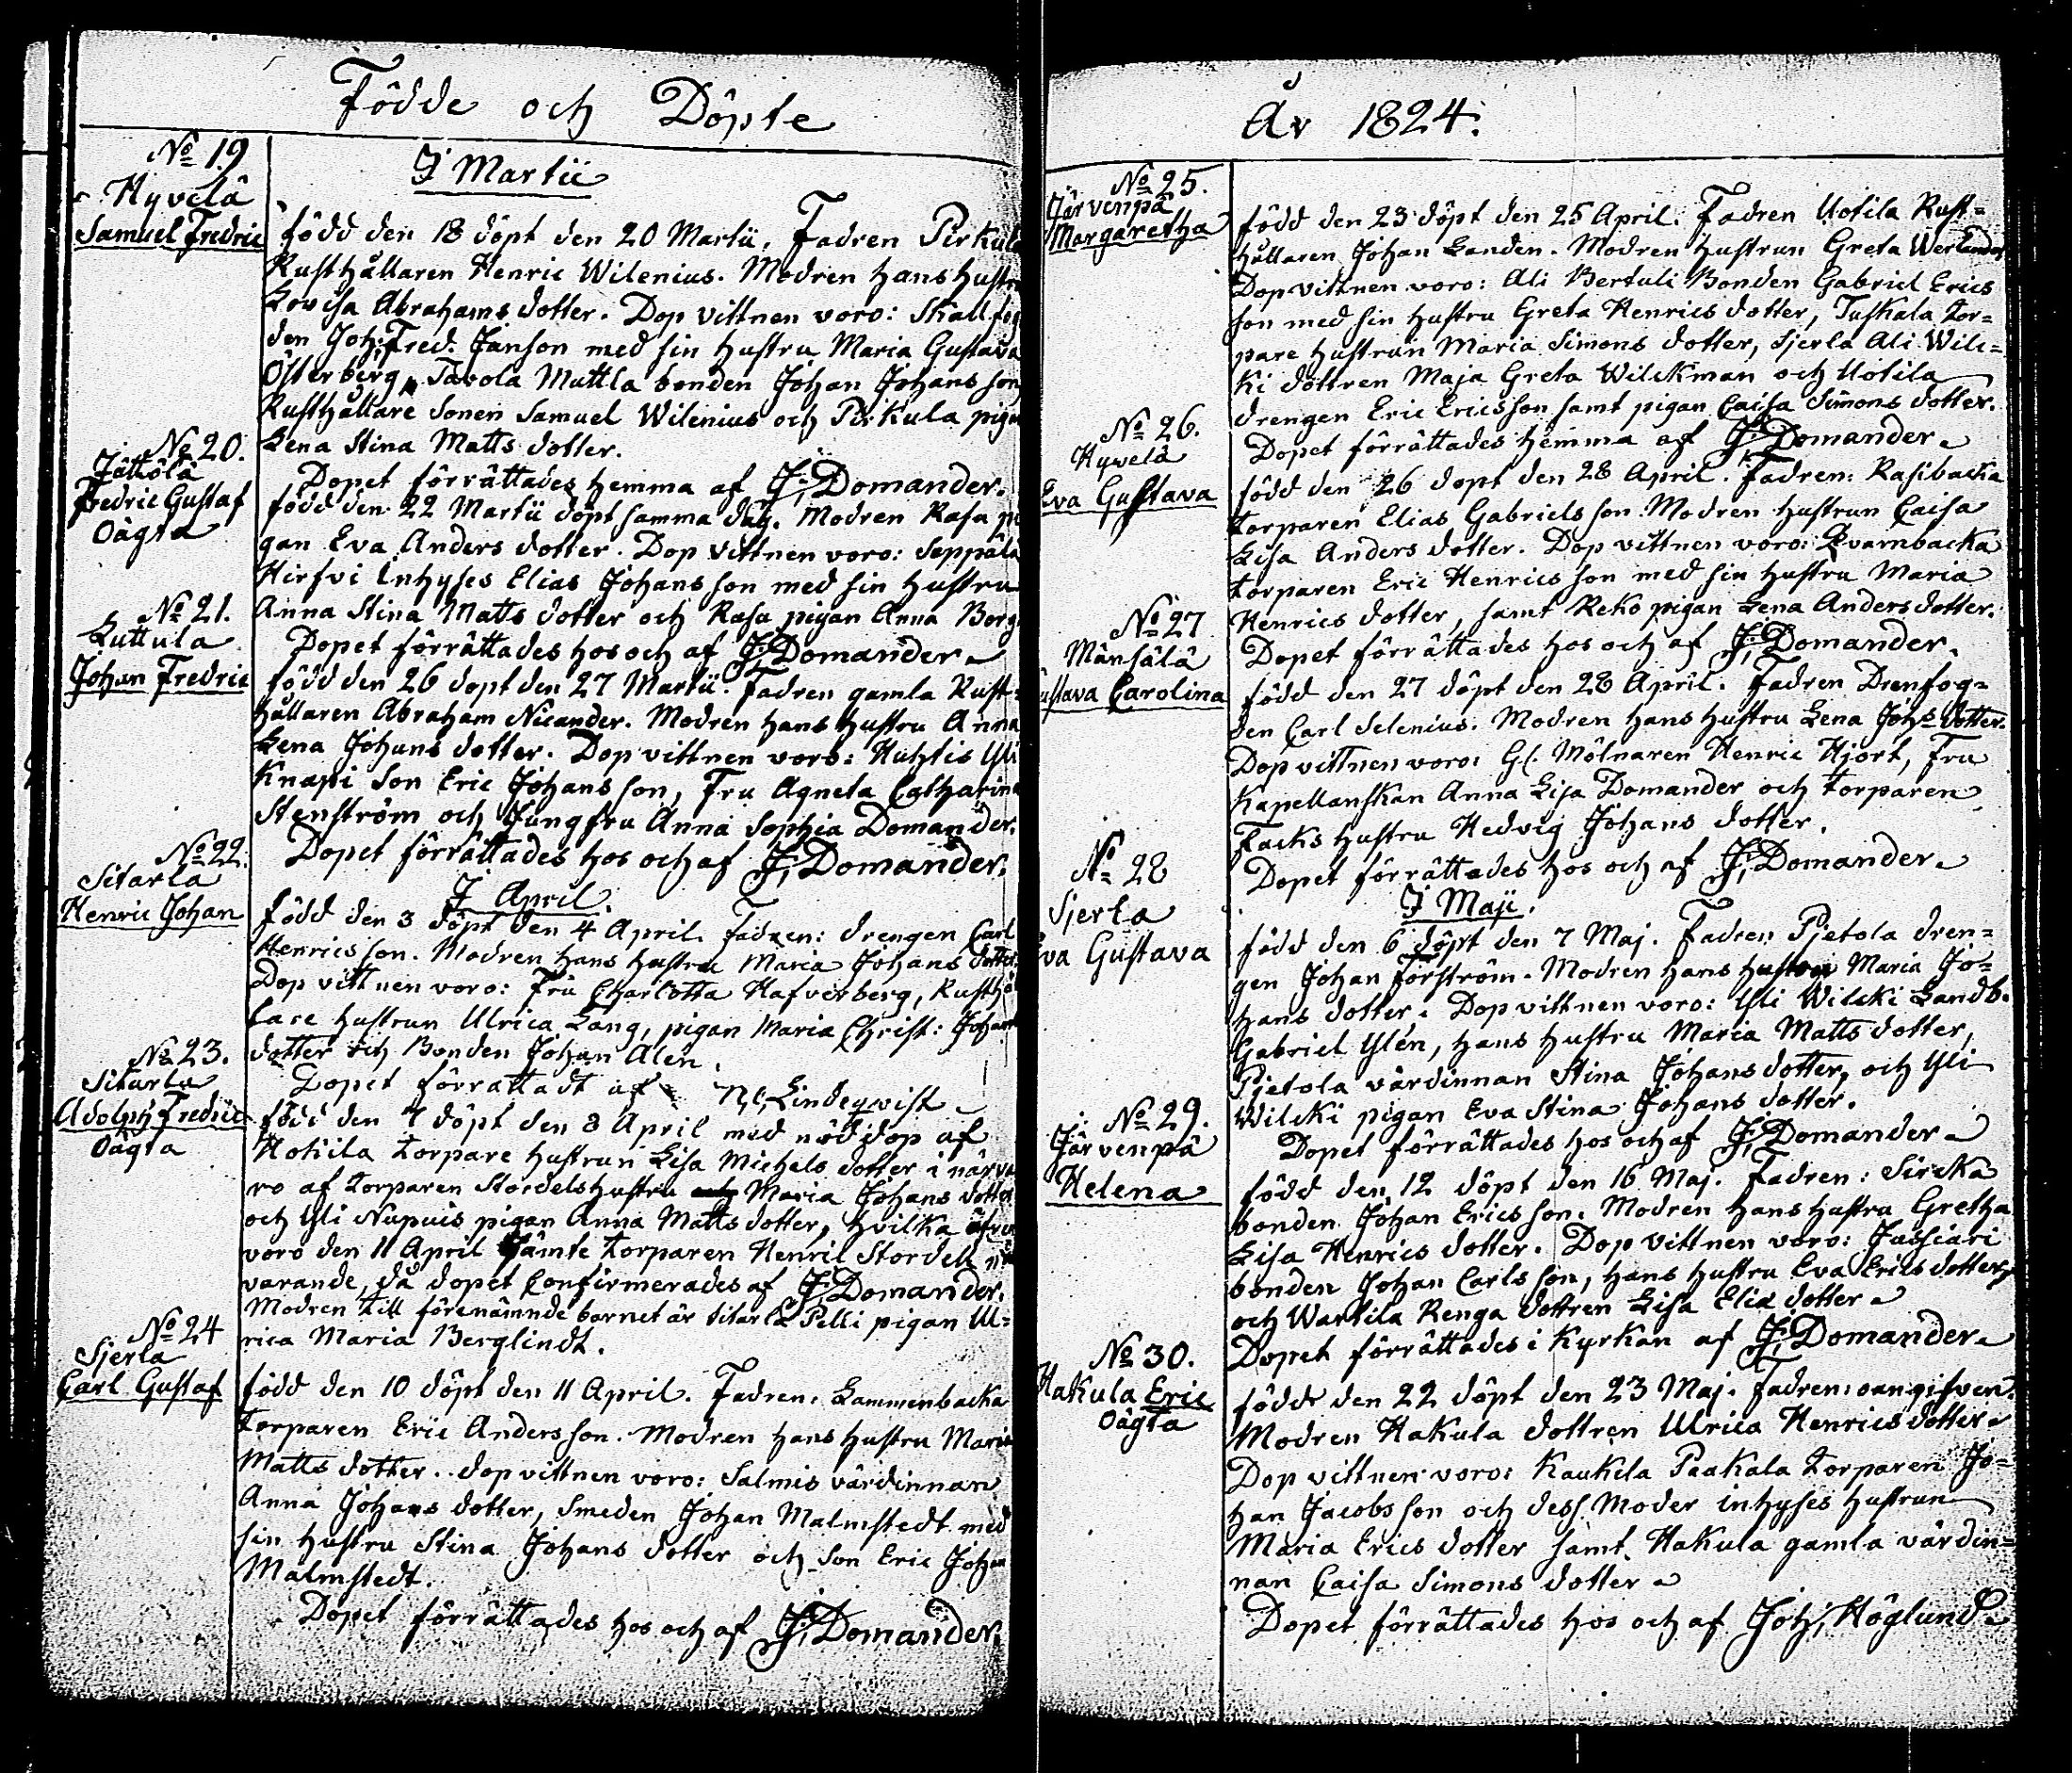 Födde och Döpte
No 19
Hyvelä
Samuel Fredric
I Martii
född den 18 döpt den 20 Martii. Fadren Pirkula
Rusthållaren Henric Wilenius. Modren hans hustru
Lovisa Abrahams dotter. Dop vittnen voro: Skallfog
den Joh: Fred. Janson med sin hustru Maria Gustava
Österberg, Tavola Mattla bonden Johan Johans son,
Rusthållare Sonen Samuel Wilenius och Pirkula piga
Lena Stina Matts dotter.
Dopet förrättades hemma af J: Domander.
No 20.
Jättölä
Fredric Gustaf
Oägta
född den 22 Martii döpt samma dag. Modren Rasa pi
gan Eva Anders dotter. Dop vittnen voro: Seppälä
Hirfvi Inhyses Elias Johans son med sin hustru
Anna Stina Matts dotter och Rasa pigan Anna Borg.
Dopet förrättades hos och af J: Domander
No 21.
Luttula
Johan Fredric
född den 26 döpt den 27 Martii. Fadren gamla Rust-
hållaren Abraham Nicander. Modren hans hustru Anna
Lena Johans dotter. Dop vittnen voro: Huhtis Yli
Knapi Son Eric Johans son, Fru Agneta Catharina
Stenström och Jungfru Anna Sophia Domander.
Dopet förrättades hos och af J: Domander.
No 22.
Sitarla
Henric Johan
I April.
född den 3 döpt den 4 April. Fadren: drengen Carl
Henrics son. Modren hans hustru Maria Johans dotter
Dop vittnen voro: Fru Charlotta Hafverberg, Rusthå
lare hustrun Ulrica Lang, pigan Maria Christ: Johans
dotter och Bonden Johan Alen.
Dopet förrättadt af N: C: Lindeqvist
No 23.
Sitarla
Adolph Fredric
Oägta
född den 7 döpt den 8 April med nöddop af
Hokila torpare hustrun Lisa Michels dotter i närva
ro af torparen Stordels hustru Maria Johans dotter
och Yli Nupuis pigan Anna Matts dotter, hvilka äfven
voro den 11 April jämte torparen Henric Stordell när
varande, då dopet Confirmerades af J: Domander.
Modren till förenämnde barnet är Sitarla Pelli pigan Ul=
rica Maria Berglindt.
No 24
Sjerla
Carl Gustaf
född den 10 döpt den 11 April. Fadren: Lammenbacka
torparen Eric Anders son. Modren hans hustru Maria
Matts dotter. dop vittnen voro: Salmis värdinnan
Anna Johans dotter, Smeden Johan Malmstedt med
sin hustru Stina Johans dotter och Son Eric Johan
Malmstedt.
Dopet förrättades hos och af J: Domander.
År 1824.
No 25.
Järvenpä
Margaretha
född den 23 döpt den 25 April. Fadren Uotila Rust=
hållaren Johan Landen. Modren hustrun Greta Werlander
Dop vittnen voro: Ali Bertuli Bonden Gabriel Erics
son med sin hustru Greta Henrics dotter, Tuskala tor=
pare hustrun Maria Simons dotter, Sjerla Ali Wilc=
ki dottren Maja Greta Wilckman och Uotila
drengen Eric Ericsson samt pigan Caisa Simons dotter.
Dopet förrättades hemma af J: Domander.
No 26.
Hyvelä
Eva Gustava
född den 26 döpt den 28 April. Fadren: Rasibacka
torparen Elias Gabriels son. Modren hustrun Caisa
Lisa Anders dotter. Dop vittnen voro: Qvarnbacka
torparen Eric Henrics son med sin hustru Maria
Henrics dotter, samt Reko pigan Lena Anders dotter.
Dopet förrättades hos och af J: Domander.
No 27
Mänsälä
ustava Carolina
född den 27 döpt den 28 April. Fadren Drenfog=
den Carl Selenius. Modren hans hustru Lena Johs dotter.
Dop vittnen voro: Gl. Mölnaren Henric Hjort, Fru
Kapellanskan Anna Lisa Domander och torparen
Facks hustru Hedvig Johans dotter.
Dopet förrättades hos och af J: Domander.
No 28
Sjerla
Eva Gustava
I Maji.
född den 6 döpt den 7 Maj. Fadren Pjetola dren=
gen Johan Förström. Modren hans hustru Maria Jo=
hans dotter. Dop vittnen voro: Yli Wilcki Landb.
Gabriel Ylén, hans hustru Maria Matts dotter,
Pjetola värdinnan Stina Johans dotter, och Yli
Wilcki pigan Eva Stina Johans dotter.
Dopet förrättades hos och af J: Domander
No 29.
Järvenpä
Helena
född den 12 döpt den 16 Maj. Fadren: Sircka
bonden Johan Erics son. Modren hans hustru Gretha
Lisa Henrics dotter. Dop vittnen voro: Jussiari
bonden Johan Carls son, hans hustru Eva Erics dotter,
och Wartila Renga dottren Lisa Elia dotter
Dopet förrättades i kyrkan af J: Domander.
No 30.
Hakula Eric
Oägta
född den 22 döpt den 23 Maj. Fadren: oangifven.
Modren Hakula dottren Ulrica Henrics dotter
Dop vittnen voro: Kaukela Paakala torparen Jo=
han Jacobs son och dess Moder inhyses hustrun
Maria Erics dotter samt Hakula gamla värdin=
nan Caisa Simons dotter
Dopet förrättades hos och af Joh: Höglund